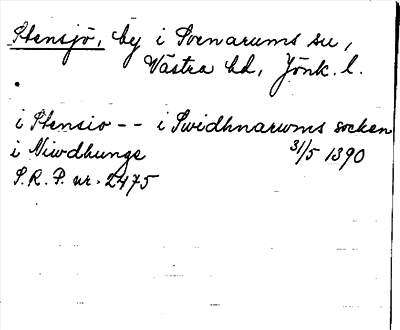 Stensjö, by i Svenarums su,
Västra hd, Jönk. l.
i Stensio -- i Swidhnarwms socken
i Niwdhunge 31/5 1390
S.R.P. nr. 2475